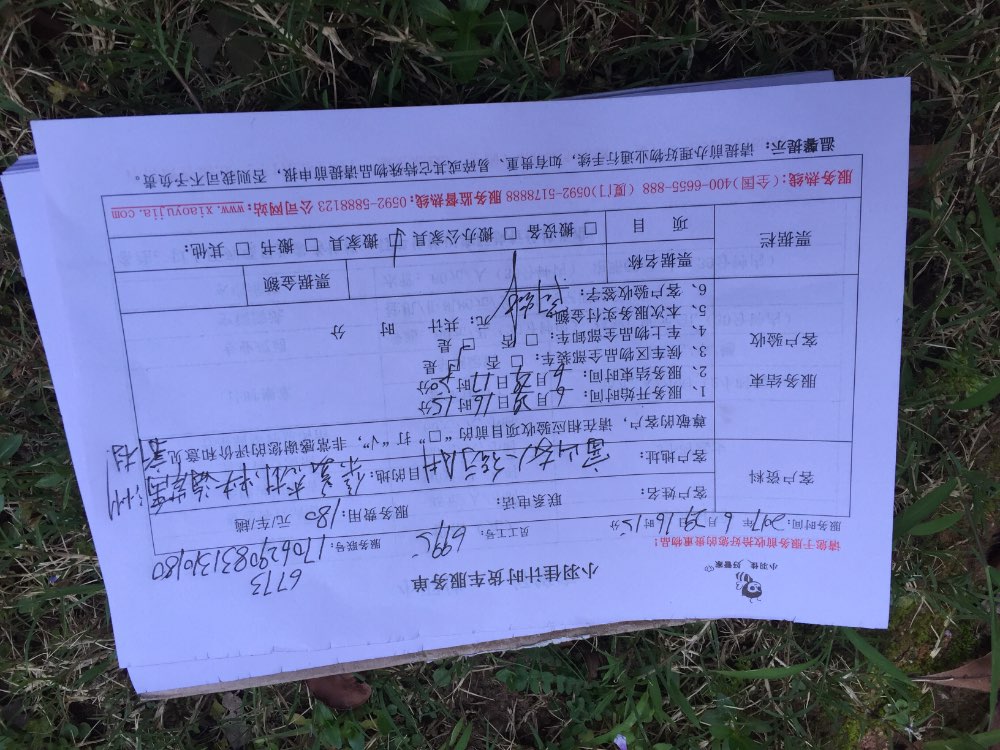 小羽佳 好管家
小羽佳计时货车服务单
6773
请您于服务前收拾好您的贵重物品！
服务时间：2017年6月29日16时15分 员工工号：6995 服务账号：170629083131080
客户资料
客户姓名： 联系电话： 服务费用：180元/车/趟
客户地址： 目的地：
服务结束
客户验收
尊敬的客户，请在相应验收项目前的“□”打“√”，非常感谢您的评价和意见
1、服务开始时间：6月29日16时15分
2、服务结束时间：6月29日17时50分
3、候车区物品全部装车：□否 □是
4、车上物品全部卸车：□否 □是
5、本次服务实付金额： 元；共计 时 分
6、客户验收签字：
票据栏
票据名称 票据金额
项目 □搬设备 □搬办公家具 □搬家具 □搬书 □其他：
服务热线：(全国)400-6655-888 (厦门)0592-5178888 服务监督热线：0592-5888123 公司网站：www.xiaoyujia.com
温馨提示：请提前办理好物业通行手续，如有贵重、易碎或其它特殊物品请提前申报，否则我司不予负责。